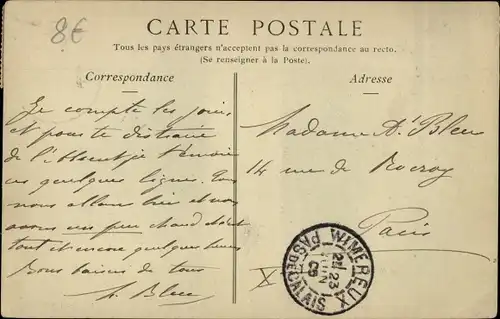 8€
CARTE POSTALE
Tous les pays étrangers n'acceptent pas la correspondance au recto.
(Se renseigner à la Poste).
Correspondance
Adresse
Je compte les jours
et pour te distraire
de l'absent je t'envoie
ces quelques lignes. Tous
nous allons bien et nous
avons un peu chaud
tout et encore quelques
Bons baisers de tous
A. Bleu
Madame A. Bleu
14 rue de Rocroy
Paris
X
WIMEREUX
PAS-DE-CALAIS